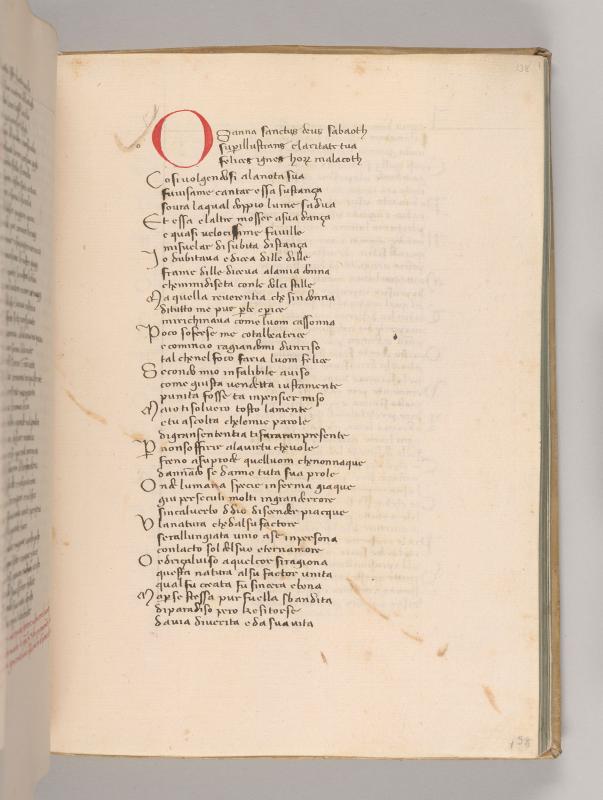 138
OSanna sanctus deus sabaoth
suꝑillustrans claritate tua
felices ignes hoꝝ malacoth
Cosi volgendosi alanota sua
fuvisame cantar essa sustança
soura laqual doppio lume sadua
Et essa elaltre mosser asua dança
e quasi velocissime faville
misuelar disubita distança
Io dubitava edicea dille dille
frame dille diceva alamia donna
chemmidiseta conle dolci stille
Ma quella reverentia che sindonna
ditutto me pur ꝑbe eꝑice
mirichinava come luom cassonna
Poco soferse me cotalbeatrice
ecomincio ragiandomi dunriso
tal chenel foco faria luom felice
Secondo mio infalibile aviso
come giusta vendetta iustamente
punita fosse ta inpensier miso
Maio tisoluero tosto lamente
etu ascolta chelomie parole
digransententia tifararanpresente
Ꝑ nonsoffrir alavirtu chevole
freno asuprode quelluom chenonnaque
dannado se danno tuta sua prole
Onde lumana specie inferma giaque
giu perseculi molti ingranderrore
sincaluerbo ddio discender piacque
Vlanatura chedalsu factore
serallungiata unio ase inpersona
conlacto sol delsuo eternamore
Ordriçaluiso aquelcor siragiona
questa natura alsu factor unita
qual fu creata fu sincera ebona
Maꝑse stessa pur fuella sbandita
diparadiso pero kesitorse
davia diverita edasua vita
138